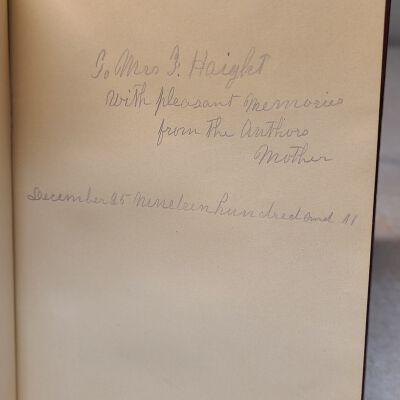 To Mrs F. Haight
with pleasant memories
from the Authors
Mother
December 25 Nineteen hundred and 11